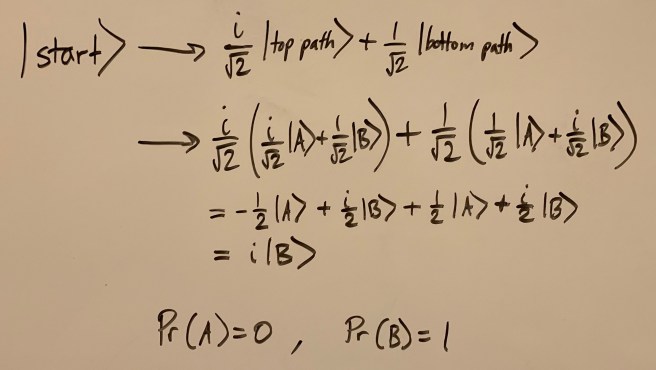 |start⟩ ⟶ i/√2 |top path⟩ + 1/√2 |bottom path⟩
⟶ i/√2 (i/√2 |A⟩ + 1/√2 |B⟩) + 1/√2 (1/√2 |A⟩ + i/√2 |B⟩)
= -1/2 |A⟩ + i/2 |B⟩ + 1/2 |A⟩ + i/2 |B⟩
= i |B⟩
Pr(A)=0 , Pr(B)=1